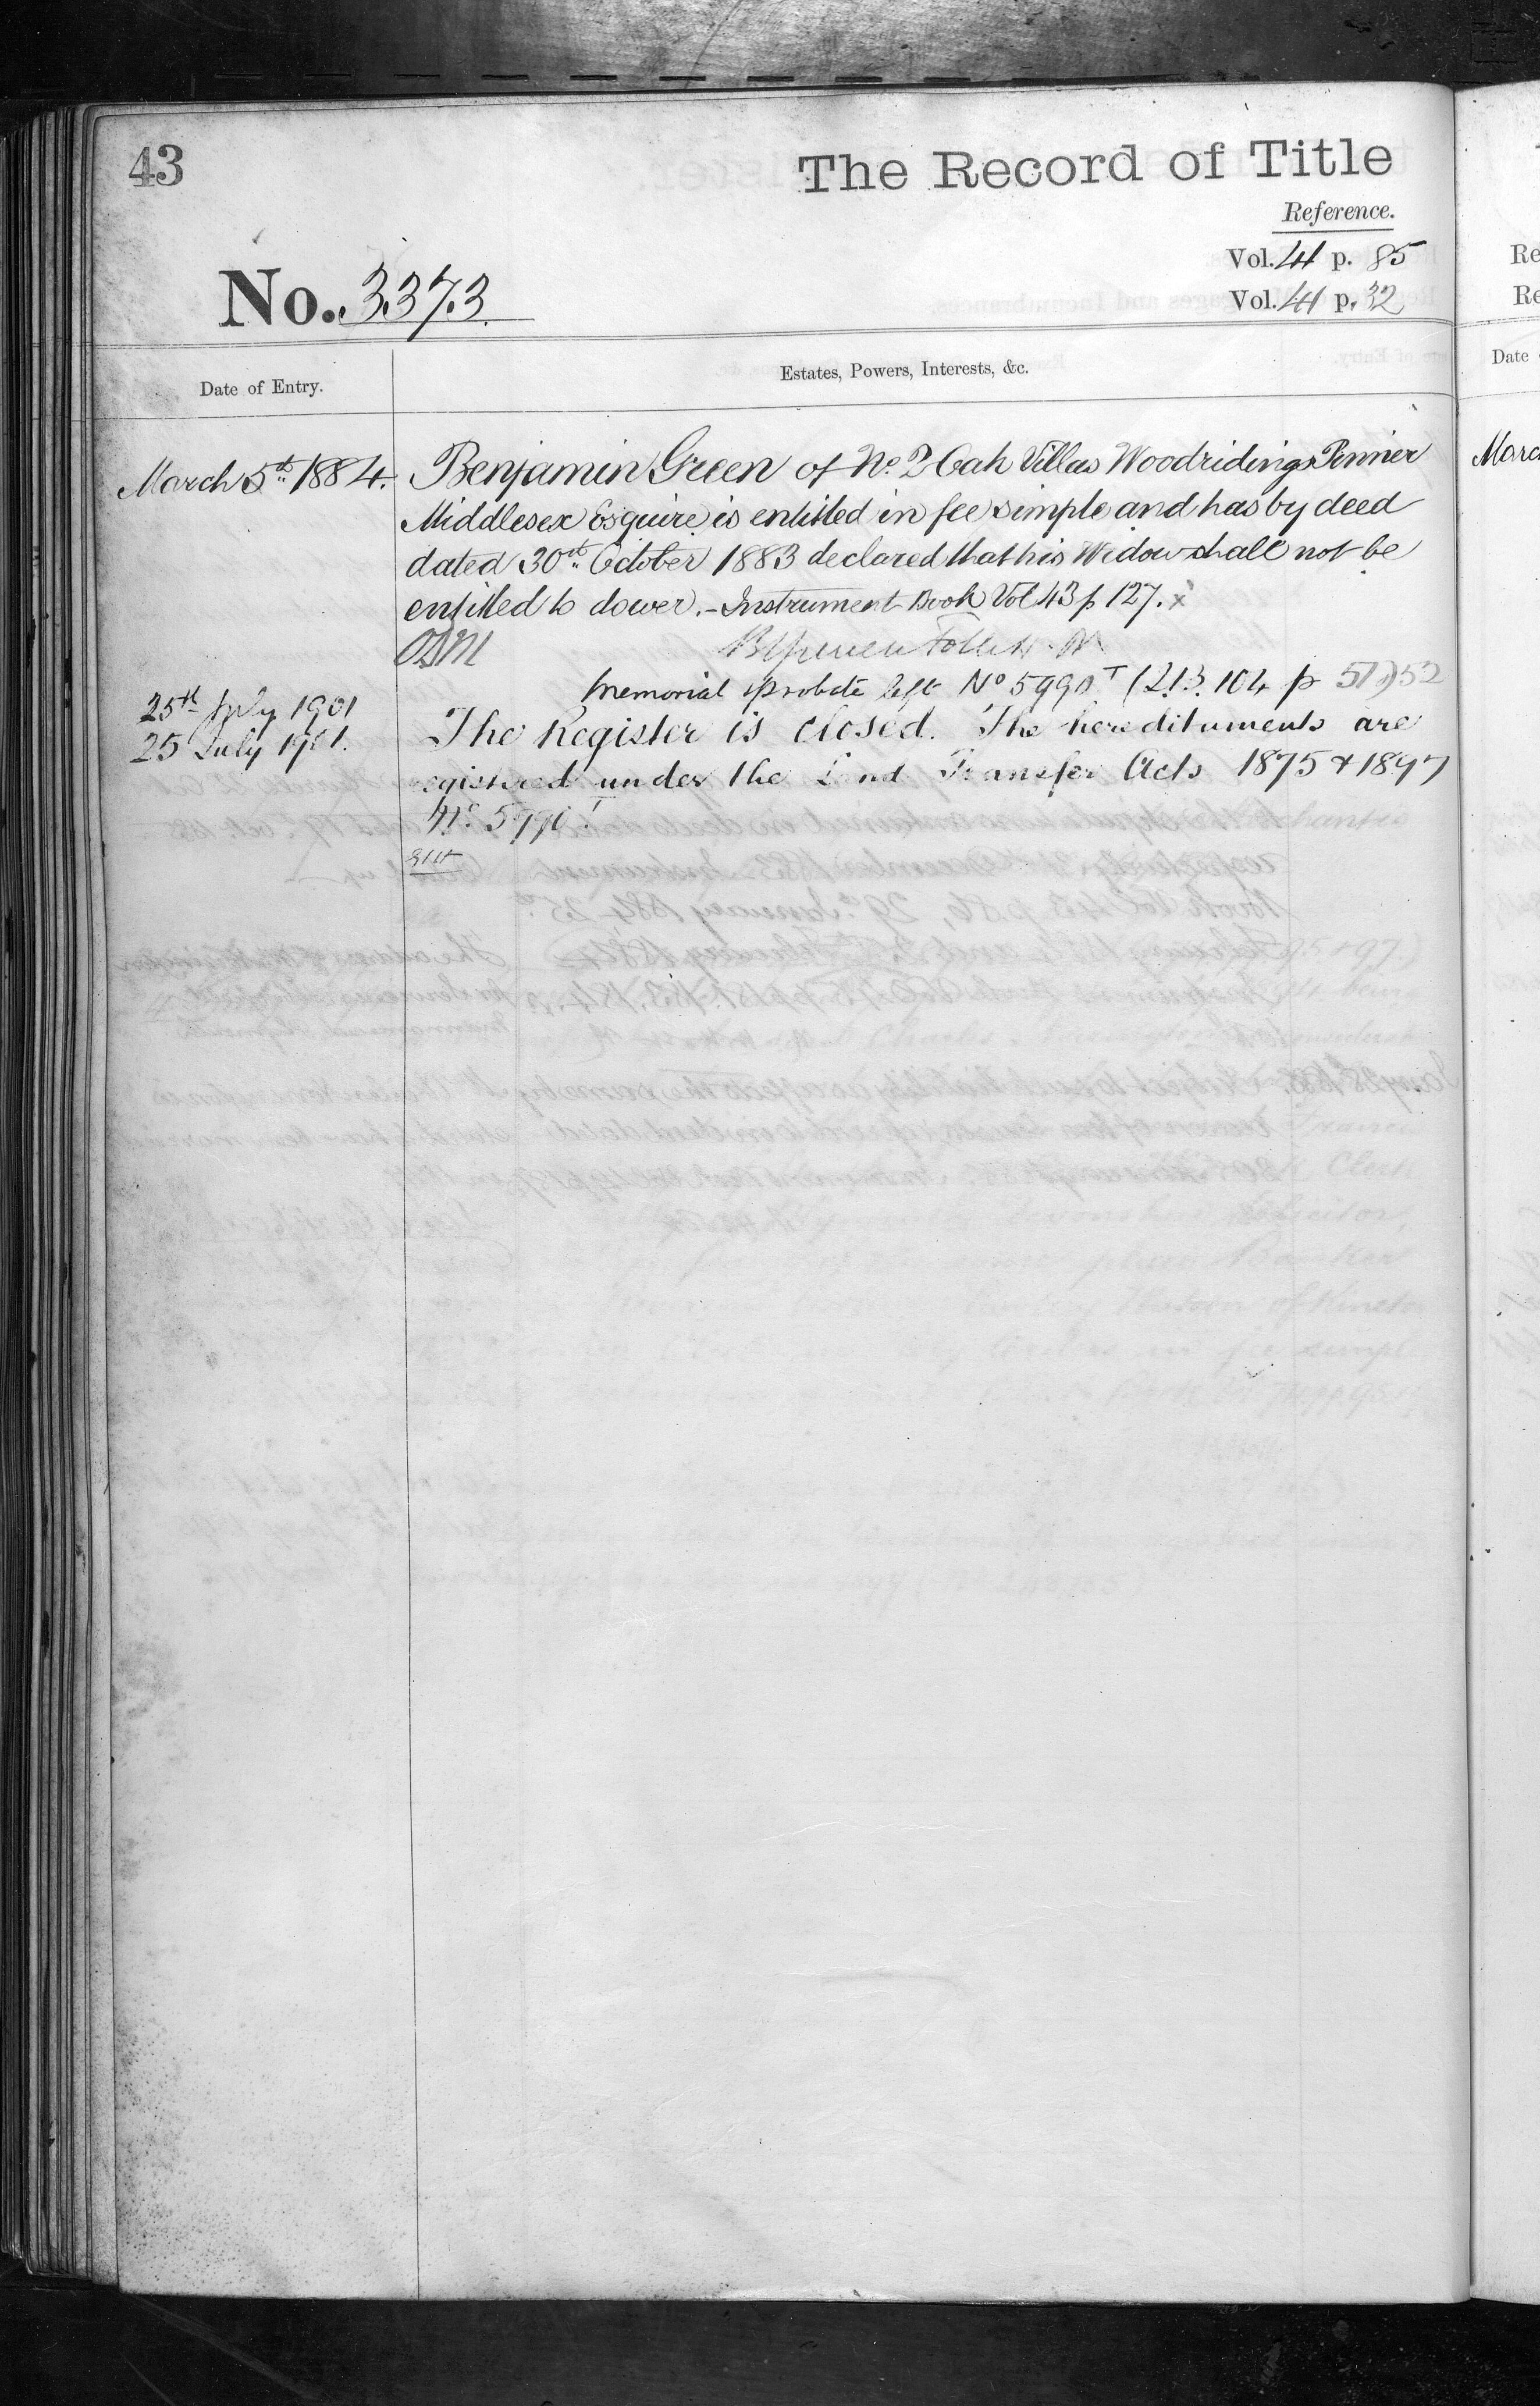 43
The Record of Title
Reference.
Vol. 41 p. 85
Vol. 41 p. 32
No. 3373
Date of Entry.
Estates, Powers, Interests, &c.
March 5th 1884. Benjamin Green of No. 2 Oak Villas Woodridings Pinner
Middlesex Esquire is entitled in fee simple and has by deed
dated 30th October 1883 declared that his Widow shall not be
entitled to dower. - Instrument Book Vol 43 p 127. x
25th July 1901 Memorial probate left No 5990T (213. 104 p 51) 52
25 July 1901. The Register is closed. The hereditaments are
registered under the Land Transfer Acts 1875 & 1897
No. 5990T
Re
Re
Date
March